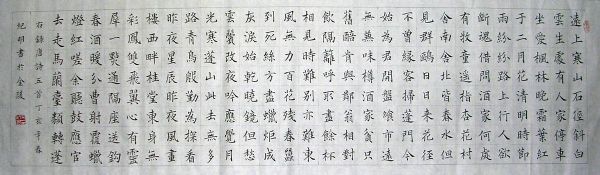 遠上寒山石徑斜白
雲生處有人家停車
坐愛楓林晚霜葉紅
于二月花清明時節
雨紛紛路上行人欲
斷魂借問酒家何處
有牧童遙指杏花村
舍南舍北皆春水但
見群鷗日日來花徑
不曾緣客掃蓬門今
始為君開盤飧市遠
無兼味樽酒家貧只
舊醅肯與鄰翁相對
飲隔籬呼取盡餘杯
相見時難別亦難東
風無力百花殘春蠶
到死絲方盡蠟炬成
灰淚始乾曉鏡但愁
雲鬢改夜吟應覺月
光寒蓬山此去無多
路青鳥殷勤為探看
昨夜星辰昨夜風畫
樓西畔桂堂東身無
彩鳳雙飛翼心有靈
犀一點通隔座送鉤
春酒暖分曹射覆蠟
燈紅嗟余聽鼓應官
去走馬蘭臺類轉蓬
右錄唐詩五首丁亥年春
紀明書於金陵